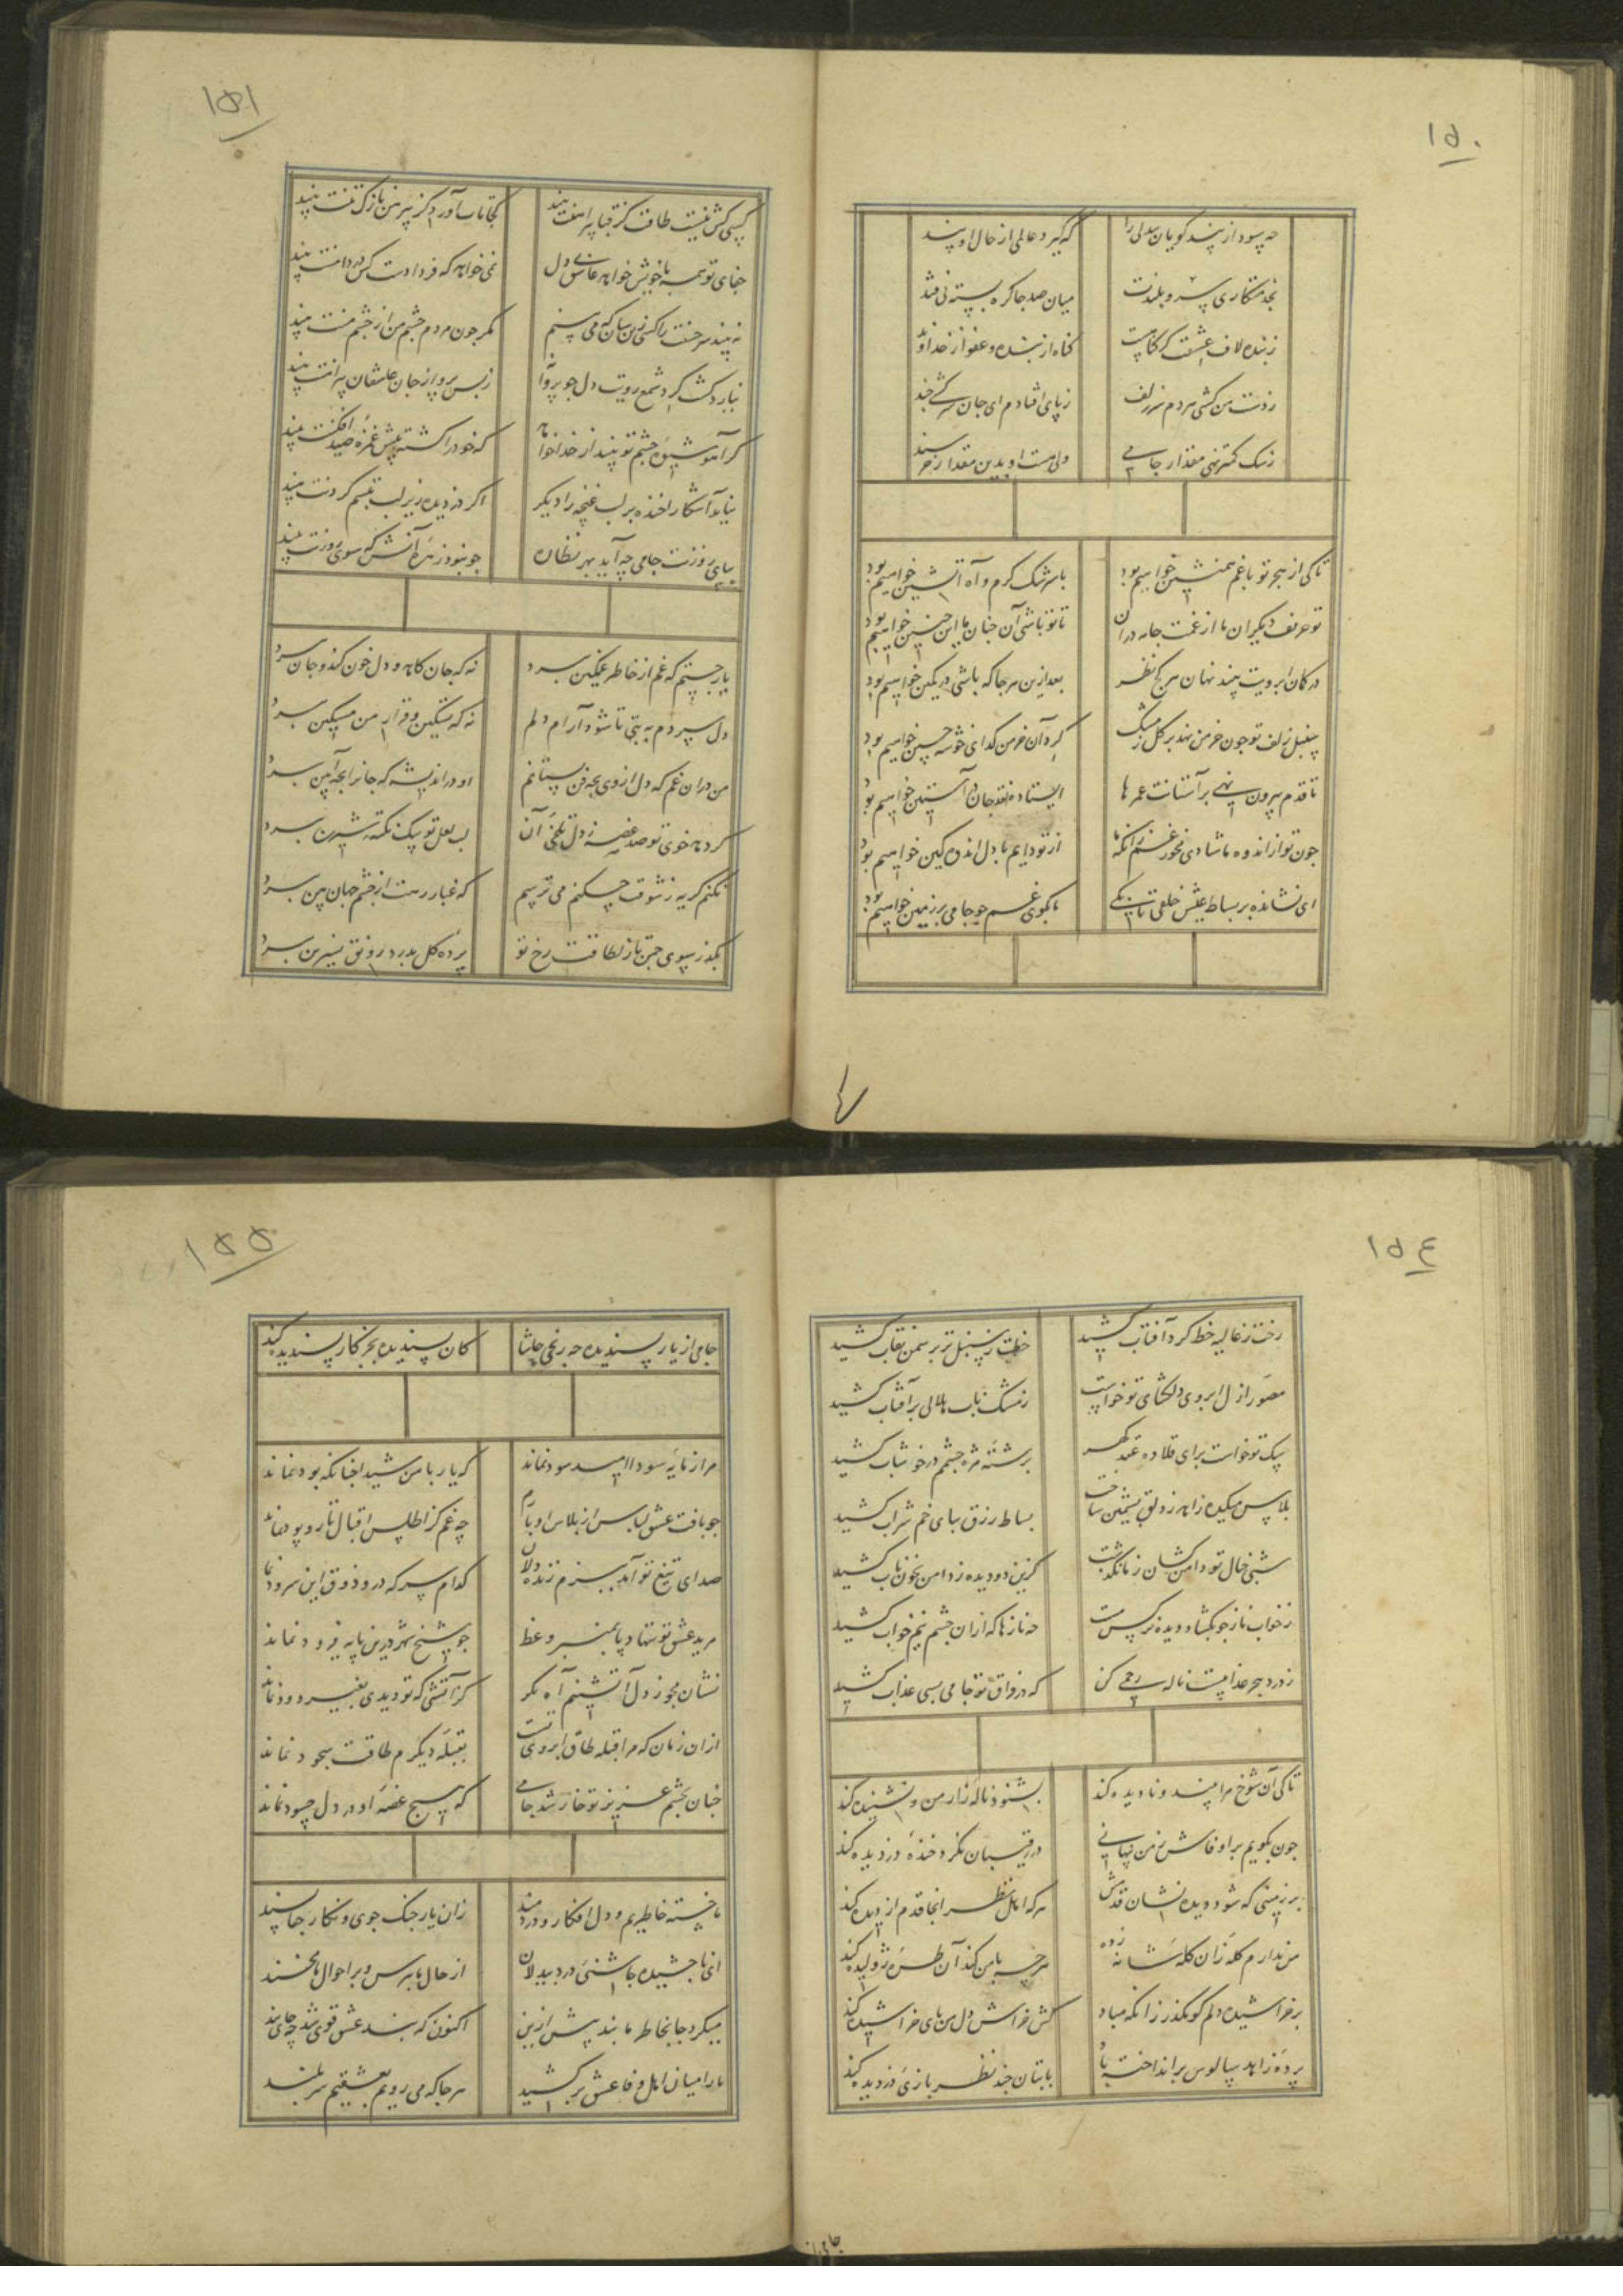 ۱۵۰
چه سود از پند گویان بیدلی را
که گیرد عالمی از حال او پند
میان صد جا کره بسته نی قند
ز بنده لاف عشقت کر کناهست
کناه از بنده و عفو از خداوند
ز پای افتادم ای جان سرکشی چند
ولی هست او بدین مقدار خرسند
تا کی از هجر تو با غم همنشین خواهیم بود
با سرشک کرم و آه آتشین خواهیم بود
تو حریف دیکران ما از غمت جامه دران
تا تو باشی آن چنان ما این چنین خواهیم بود
بعد ازین هر جا که باشی در کمین خواهیم بود
سنبل زلف تو چون خرمن نهد بر کل ز مشک
کرد آن خرمن کدای خوشه چین خواهیم بود
تا قدم بیرون نهی بر آستانت عمرها
ایستاده نقد جان در آستین خواهیم بود
چون تو از اندوه ما شادی مخور غم زانکه ما
از تو دایم با دل اندوهکین خواهیم بود
ای نشانده بر بساط عیش خلقی تا بکی
ما بکوی غم چو جامی بر زمین خواهیم بود
۱۵۱
کسی کش نیست طاقت کز قبا پیراهنت بیند
کجا تاب آورد کز پیرهن نازک تنت بیند
جفای تو همه با خویش خواهد عاشق بی دل
نمی خواهد که فردا دست کس در دامنت بیند
نه بیند سر حسنت را کسی زین سان که می بینم
مکر چون مردم چشم من از چشم منت بیند
نیارد کشت کرد شمع رویت دل چو پروانه
ز بس پرواز جان عاشقان پیرامنت بیند
که خود را کشته پیش غمزه صید افکنت بیند
نیاید آشکارا خنده بر لب غنچه را دیکر
اکر دزدیده زیر لب تبسم کردنت بیند
بپای روزنت جامی چه آید بهر نظاره
چو نبود زهره آنش که سوی روزنت بیند
یار جستم که غم از خاطر غمکین ببرد
نه که جان کاهد و دل خون کند و جان ببرد
دل سپردم به بتی تا شود آرام دلم
نه که تسکین و قرار من مسکین ببرد
من در ان غم که دل از وی بچه فن بستانم
او در اندیشه که جانرا بچه آیین ببرد
لب لعل تو بیک نکته شیرین ببرد
نکنم کریه ز شوقت چکنم می ترسم
که غبار رهت از چشم جهان بین ببرد
بکذر سوی چمن تا ز لطافت رخ تو
پرده کل بدرد رونق نسرین ببرد
۱۵٤
رخت ز غالیه خط کرد آفتاب کشید
خطت ز سنبل تر بر سمن نقاب کشید
مصور ازل ابروی دلکشای تو خواست
ز مشک ناب هلالی بر آفتاب کشید
برشته مژه چشمم در خوشاب کشید
بساط رزق بپای خم شراب کشید
شبی خیال تو دامن کشان ز ما بکذشت
کزین دو دیده ز دامن بخون ناب کشید
ز خواب ناز چو بکشاد دیده نرکس مست
چه نازها که ازان چشم نیم خواب کشید
ز درد هجر عذابیست ناله رحمی کن
که در فراق تو جامی بسی عذاب کشید
تا کی آن شوخ مرا بیند و نادیده کند
بشنود ناله زار من و نشنیده کند
در رقیبان نکرد خنده دزدیده کند
بر زمینی که شود دیده نشان قدمش
هر که اهل نظر انجا قدم از دیده کند
من ندارم کله زان کله شانه زده
هر چه با من کند آن طره ژولیده کند
بر خراشیده دلم کو مکذر زانکه مباد
کش خراش دل من پای خراشیده کند
پرده زاهد سالوس بر انداخته باد
با بتان چند نظر بازی دزدیده کند
جامی از
۱۵۵
جامی از یار پسندیده چه رنجی حاشا
کان پسندیده بجز کار پسندیده کند
مرا ز مایه سودا امید سود نماند
که یار با من شیدا چنانکه بود نماند
چو بافت عشق لباس از پلاس ادبارم
چه غم کز اطلس اقبال تار و پود نماند
صدای تیغ تو آمد ببزم زنده دلان
کدام سر که درو ذوق این سرود نماند
مرید عشق تو ننهاد پا بمنبر وعظ
چو شیخ شهر درین پایه فرود نماند
نشان مجو ز دل آتشینم آه نکر
کز آتشی که تو دیدی بغیر دود نماند
ازان زمان که مرا قبله طاق ابروی تست
بقبله دیکرم طاقت سجود نماند
چنان بچشم عزیز تو خار شد جامی
که هیچ غصه او در دل حسود نماند
ما خسته خاطریم و دل افکار و دردمند
زان یار جنک جوی و نکار جفا پسند
ای ناچشیده چاشنی درد بیدلان
از حال ما بپرس و بر احوال ما مخند
میکرد جا بخاطر ما بند پیش ازین
اکنون که بند عشق قوی شد چه جای بند
ما را میان اهل وفا عشق بر کشید
هر جا که می رویم بعشقیم سر بلند